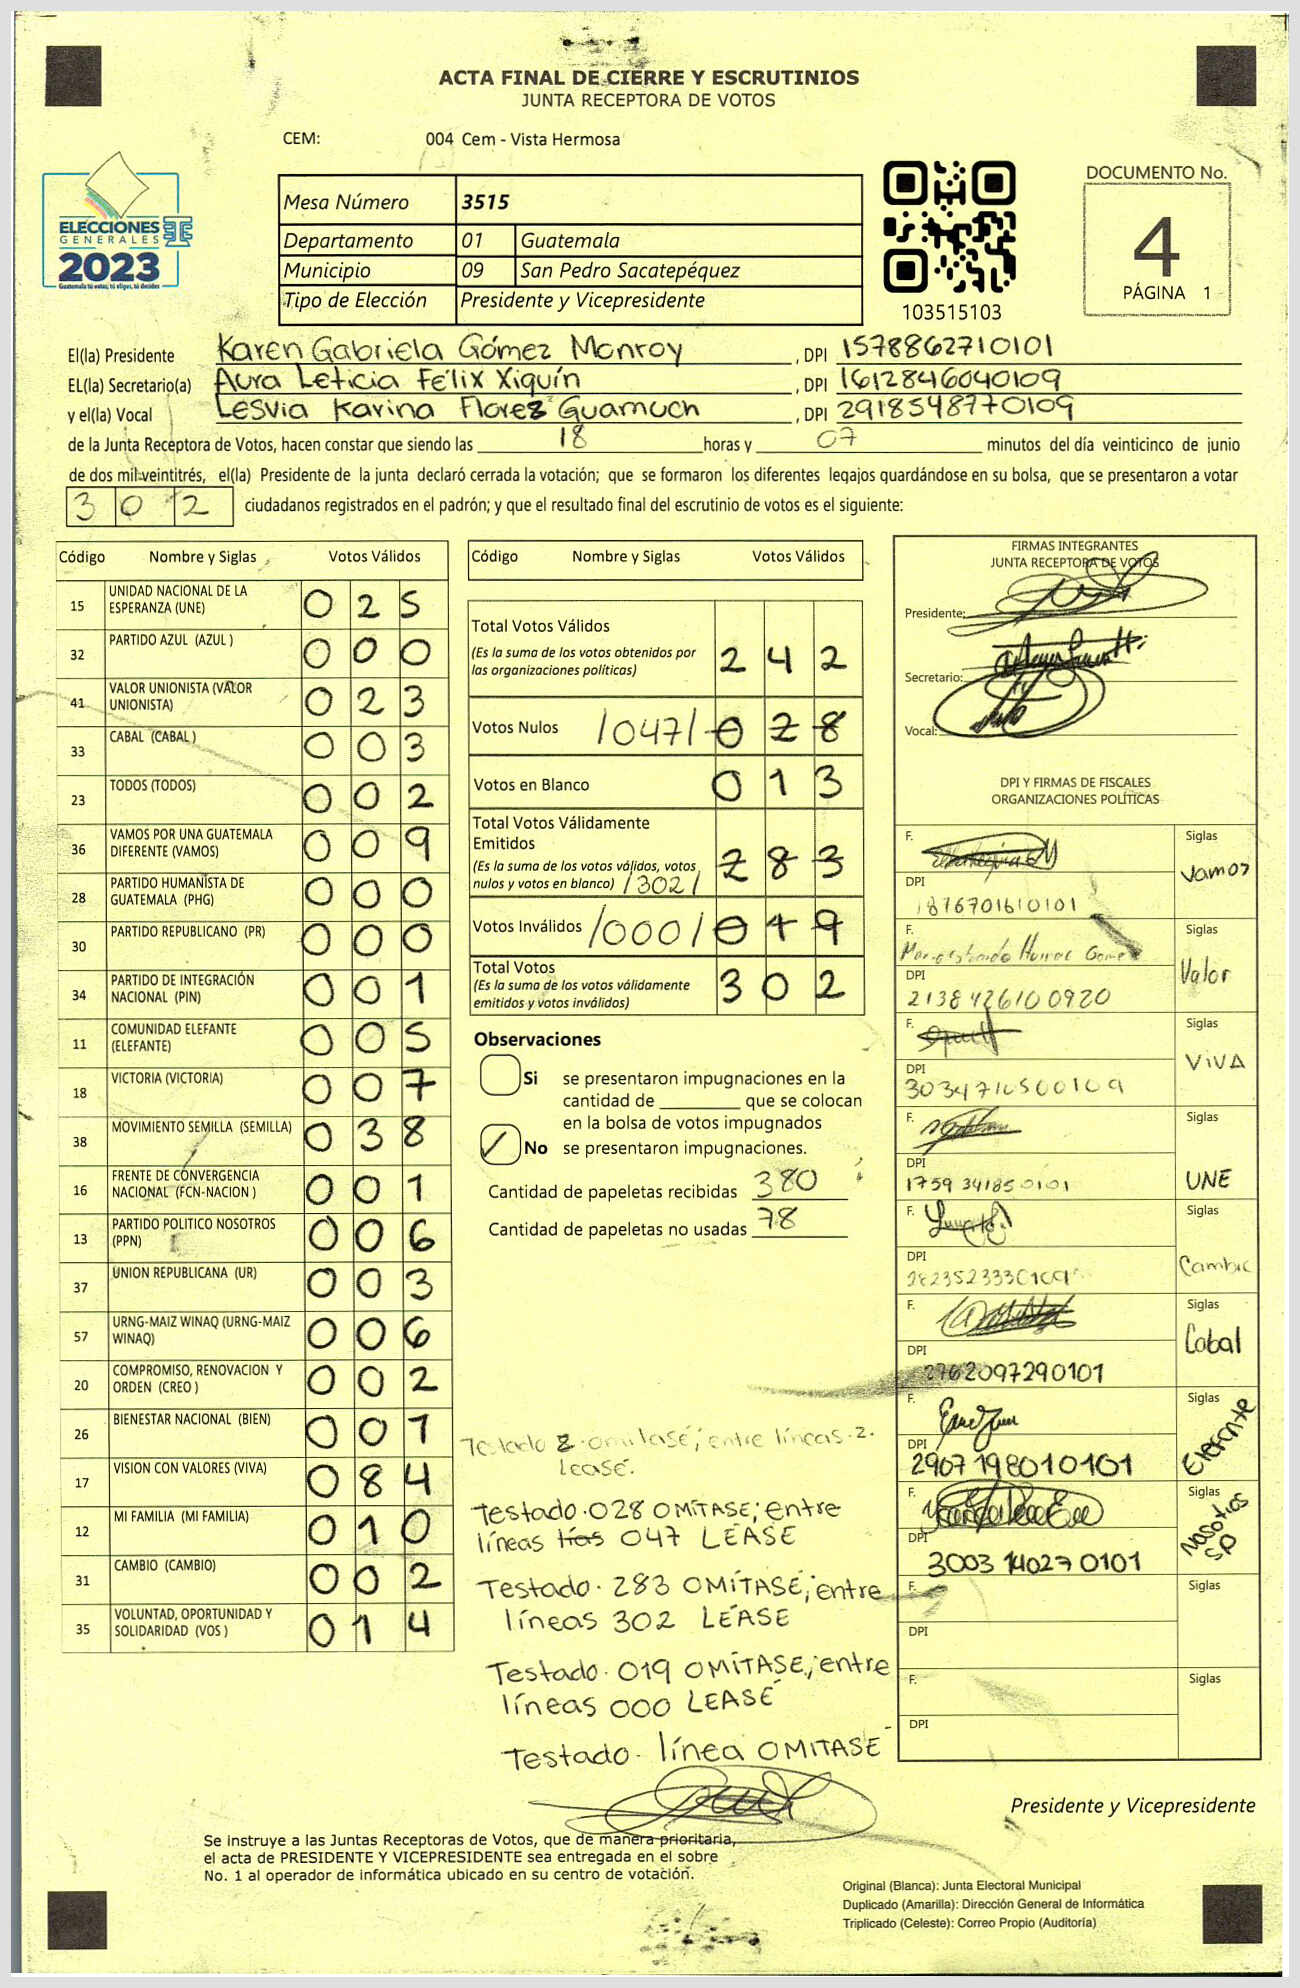 ACTA FINAL DE CIERRE Y ESCRUTINIOS
JUNTA RECEPTORA DE VOTOS
CEM: 004 Cem - Vista Hermosa
ELECCIONES
GENERALES
2023
Guatemala tú votas, tú eliges, tú decides
Mesa Número 3515
Departamento 01 Guatemala
Municipio 09 San Pedro Sacatepéquez
Tipo de Elección Presidente y Vicepresidente
103515103
DOCUMENTO No.
4
PÁGINA 1
El(la) Presidente Karen Gabriela Gómez Monroy, DPI 1578862710101
EL(la) Secretario(a) Aura Leticia Félix Xiquín, DPI 1612846040109
y el(la) Vocal Lesvia Karina Flores Guamuch, DPI 2918548770109
de la Junta Receptora de Votos, hacen constar que siendo las 18 horas y 07 minutos del día veinticinco de junio
de dos mil veintitrés, el(la) Presidente de la junta declaró cerrada la votación; que se formaron los diferentes legajos quardándose en su bolsa, que se presentaron a votar
302 ciudadanos registrados en el padrón; y que el resultado final del escrutinio de votos es el siguiente:
Código Nombre y Siglas Votos Válidos
15 UNIDAD NACIONAL DE LA ESPERANZA (UNE) 025
32 PARTIDO AZUL (AZUL ) 000
41 VALOR UNIONISTA (VALOR UNIONISTA) 023
33 CABAL (CABAL ) 003
23 TODOS (TODOS) 002
36 VAMOS POR UNA GUATEMALA DIFERENTE (VAMOS) 009
28 PARTIDO HUMANISTA DE GUATEMALA (PHG) 000
30 PARTIDO REPUBLICANO (PR) 000
34 PARTIDO DE INTEGRACIÓN NACIONAL (PIN) 001
11 COMUNIDAD ELEFANTE (ELEFANTE) 005
18 VICTORIA (VICTORIA) 007
38 MOVIMIENTO SEMILLA (SEMILLA) 038
16 FRENTE DE CONVERGENCIA NACIONAL (FCN-NACION ) 001
13 PARTIDO POLITICO NOSOTROS (PPN) 006
37 UNION REPUBLICANA (UR) 003
57 URNG-MAIZ WINAQ (URNG-MAIZ WINAQ) 006
20 COMPROMISO, RENOVACION Y ORDEN (CREO ) 002
26 BIENESTAR NACIONAL (BIEN) 001
17 VISION CON VALORES (VIVA) 084
12 MI FAMILIA (MI FAMILIA) 010
31 CAMBIO (CAMBIO) 002
35 VOLUNTAD, OPORTUNIDAD Y SOLIDARIDAD (VOS ) 014
Código Nombre y Siglas Votos Válidos
Total Votos Válidos
(Es la suma de los votos obtenidos por
las organizaciones políticas) 242
Votos Nulos /047/ 028
Votos en Blanco 013
Total Votos Válidamente
Emitidos
(Es la suma de los votos válidos, votos
nulos y votos en blanco) /302/ 283
Votos Inválidos /000/ 019
Total Votos
(Es la suma de los votos válidamente
emitidos y votos inválidos) 302
Observaciones
Si se presentaron impugnaciones en la
cantidad de ________ que se colocan
en la bolsa de votos impugnados
No se presentaron impugnaciones.
Cantidad de papeletas recibidas 380
Cantidad de papeletas no usadas 78
Testado 2 omitasé; entre líneas 2.
leasé.
Testado 028 OMÍTASE; entre
líneas 047 LEASE
Testado 283 OMÍTASE; entre
líneas 302 LÉASE
Testado 019 OMÍTASE; entre
líneas 000 LEASÉ
Testado línea OMITASÉ
FIRMAS INTEGRANTES
JUNTA RECEPTORA DE VOTOS
Presidente:
Secretario:
Vocal:
DPI Y FIRMAS DE FISCALES
ORGANIZACIONES POLÍTICAS
F. Siglas Vamos
DPI 1876701610101
F. Siglas Valor
DPI 2138426100920
F. Siglas VIVA
DPI 3034710500109
F. Siglas UNE
DPI 1759341850101
F. Siglas Cambio
DPI 2823523330109
F. Siglas Cabal
DPI 2762097290101
F. Siglas Elefante
DPI 2907198010101
F. Siglas Nosotros
DPI 3003140270101
F. Siglas
DPI
F. Siglas
DPI
Presidente y Vicepresidente
Se instruye a las Juntas Receptoras de Votos, que de manera prioritaria,
el acta de PRESIDENTE Y VICEPRESIDENTE sea entregada en el sobre
No. 1 al operador de informática ubicado en su centro de votación.
Original (Blanca): Junta Electoral Municipal
Duplicado (Amarilla): Dirección General de Informática
Triplicado (Celeste): Correo Propio (Auditoría)